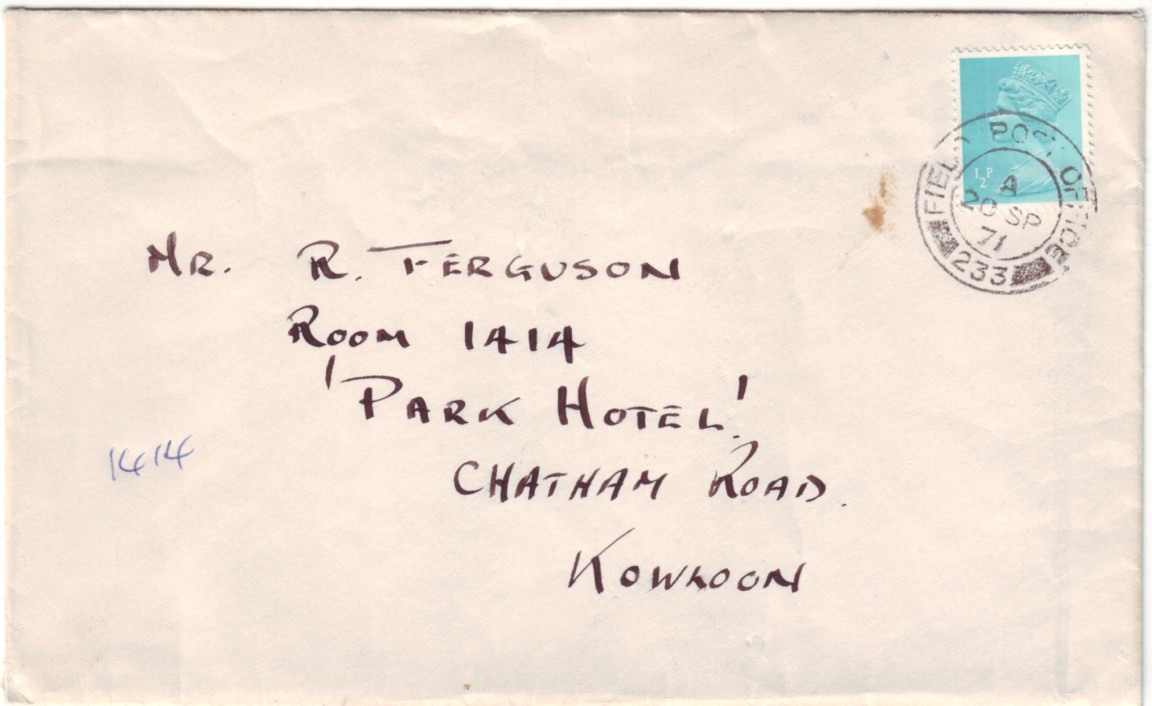 ½P
FIELD POST OFFICE
A
20 SP
71
233
MR. R. FERGUSON
ROOM 1414
'PARK HOTEL'.
CHATHAM ROAD.
KOWLOON
1414